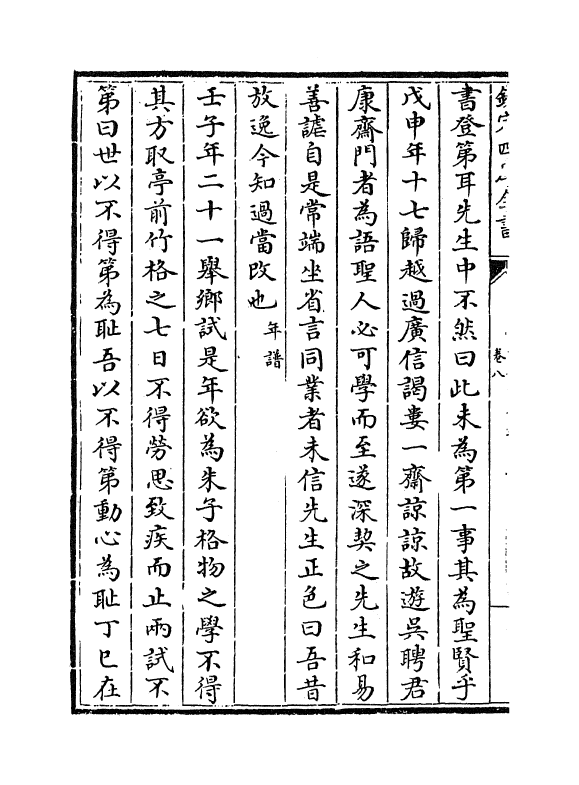 書登第耳先生中不然曰此未為第一事其為聖賢乎
戊申年十七歸越過廣信謁婁一齋諒諒故遊吳聘君
康齋門者為語聖人必可學而至遂深契之先生和易
善謔自是常端坐省言同業者未信先生正色曰吾昔
放逸今知過當改也年譜
壬子年二十一舉鄉試是年欲為朱子格物之學不得
其方取亭前竹格之七日不得勞思致疾而止兩試不
第曰世以不得第為耻吾以不得第動心為耻丁巳在
卷八